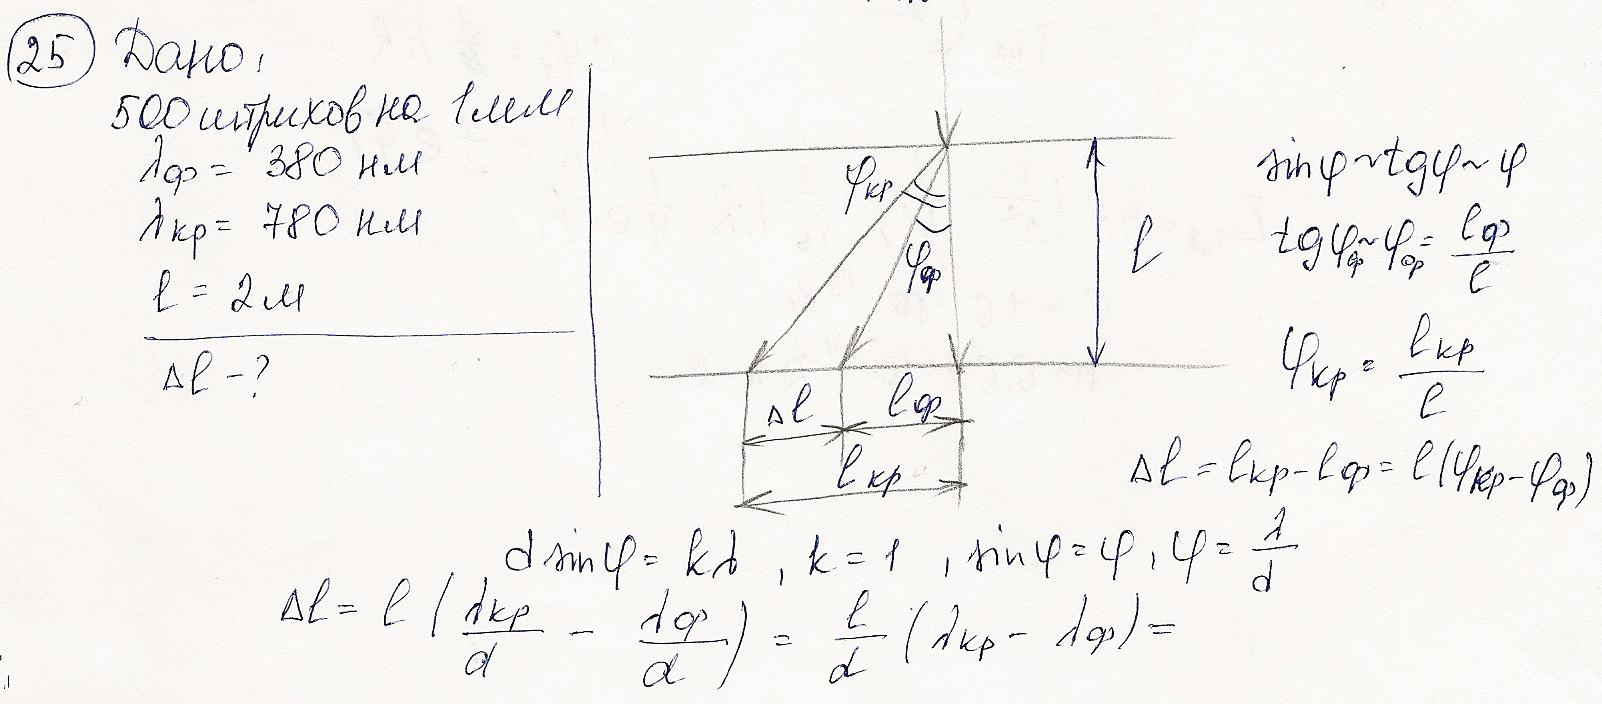 25 Дано,
500 штрихов на 1мм
λф = 380 нм
λкр = 780 нм
l = 2м
Δl - ?
φкр
φф
l
Δl
lф
lкр
sinφ ~ tgφ ~ φ
tgφф ~ φф = lф/l
φкр = lкр/l
Δl = lкр - lф = l(φкр - φф)
d sinφ = kλ, k = 1, sinφ = φ, φ = λ/d
Δl = l (λкр/d - λф/d) = l/d (λкр - λф) =